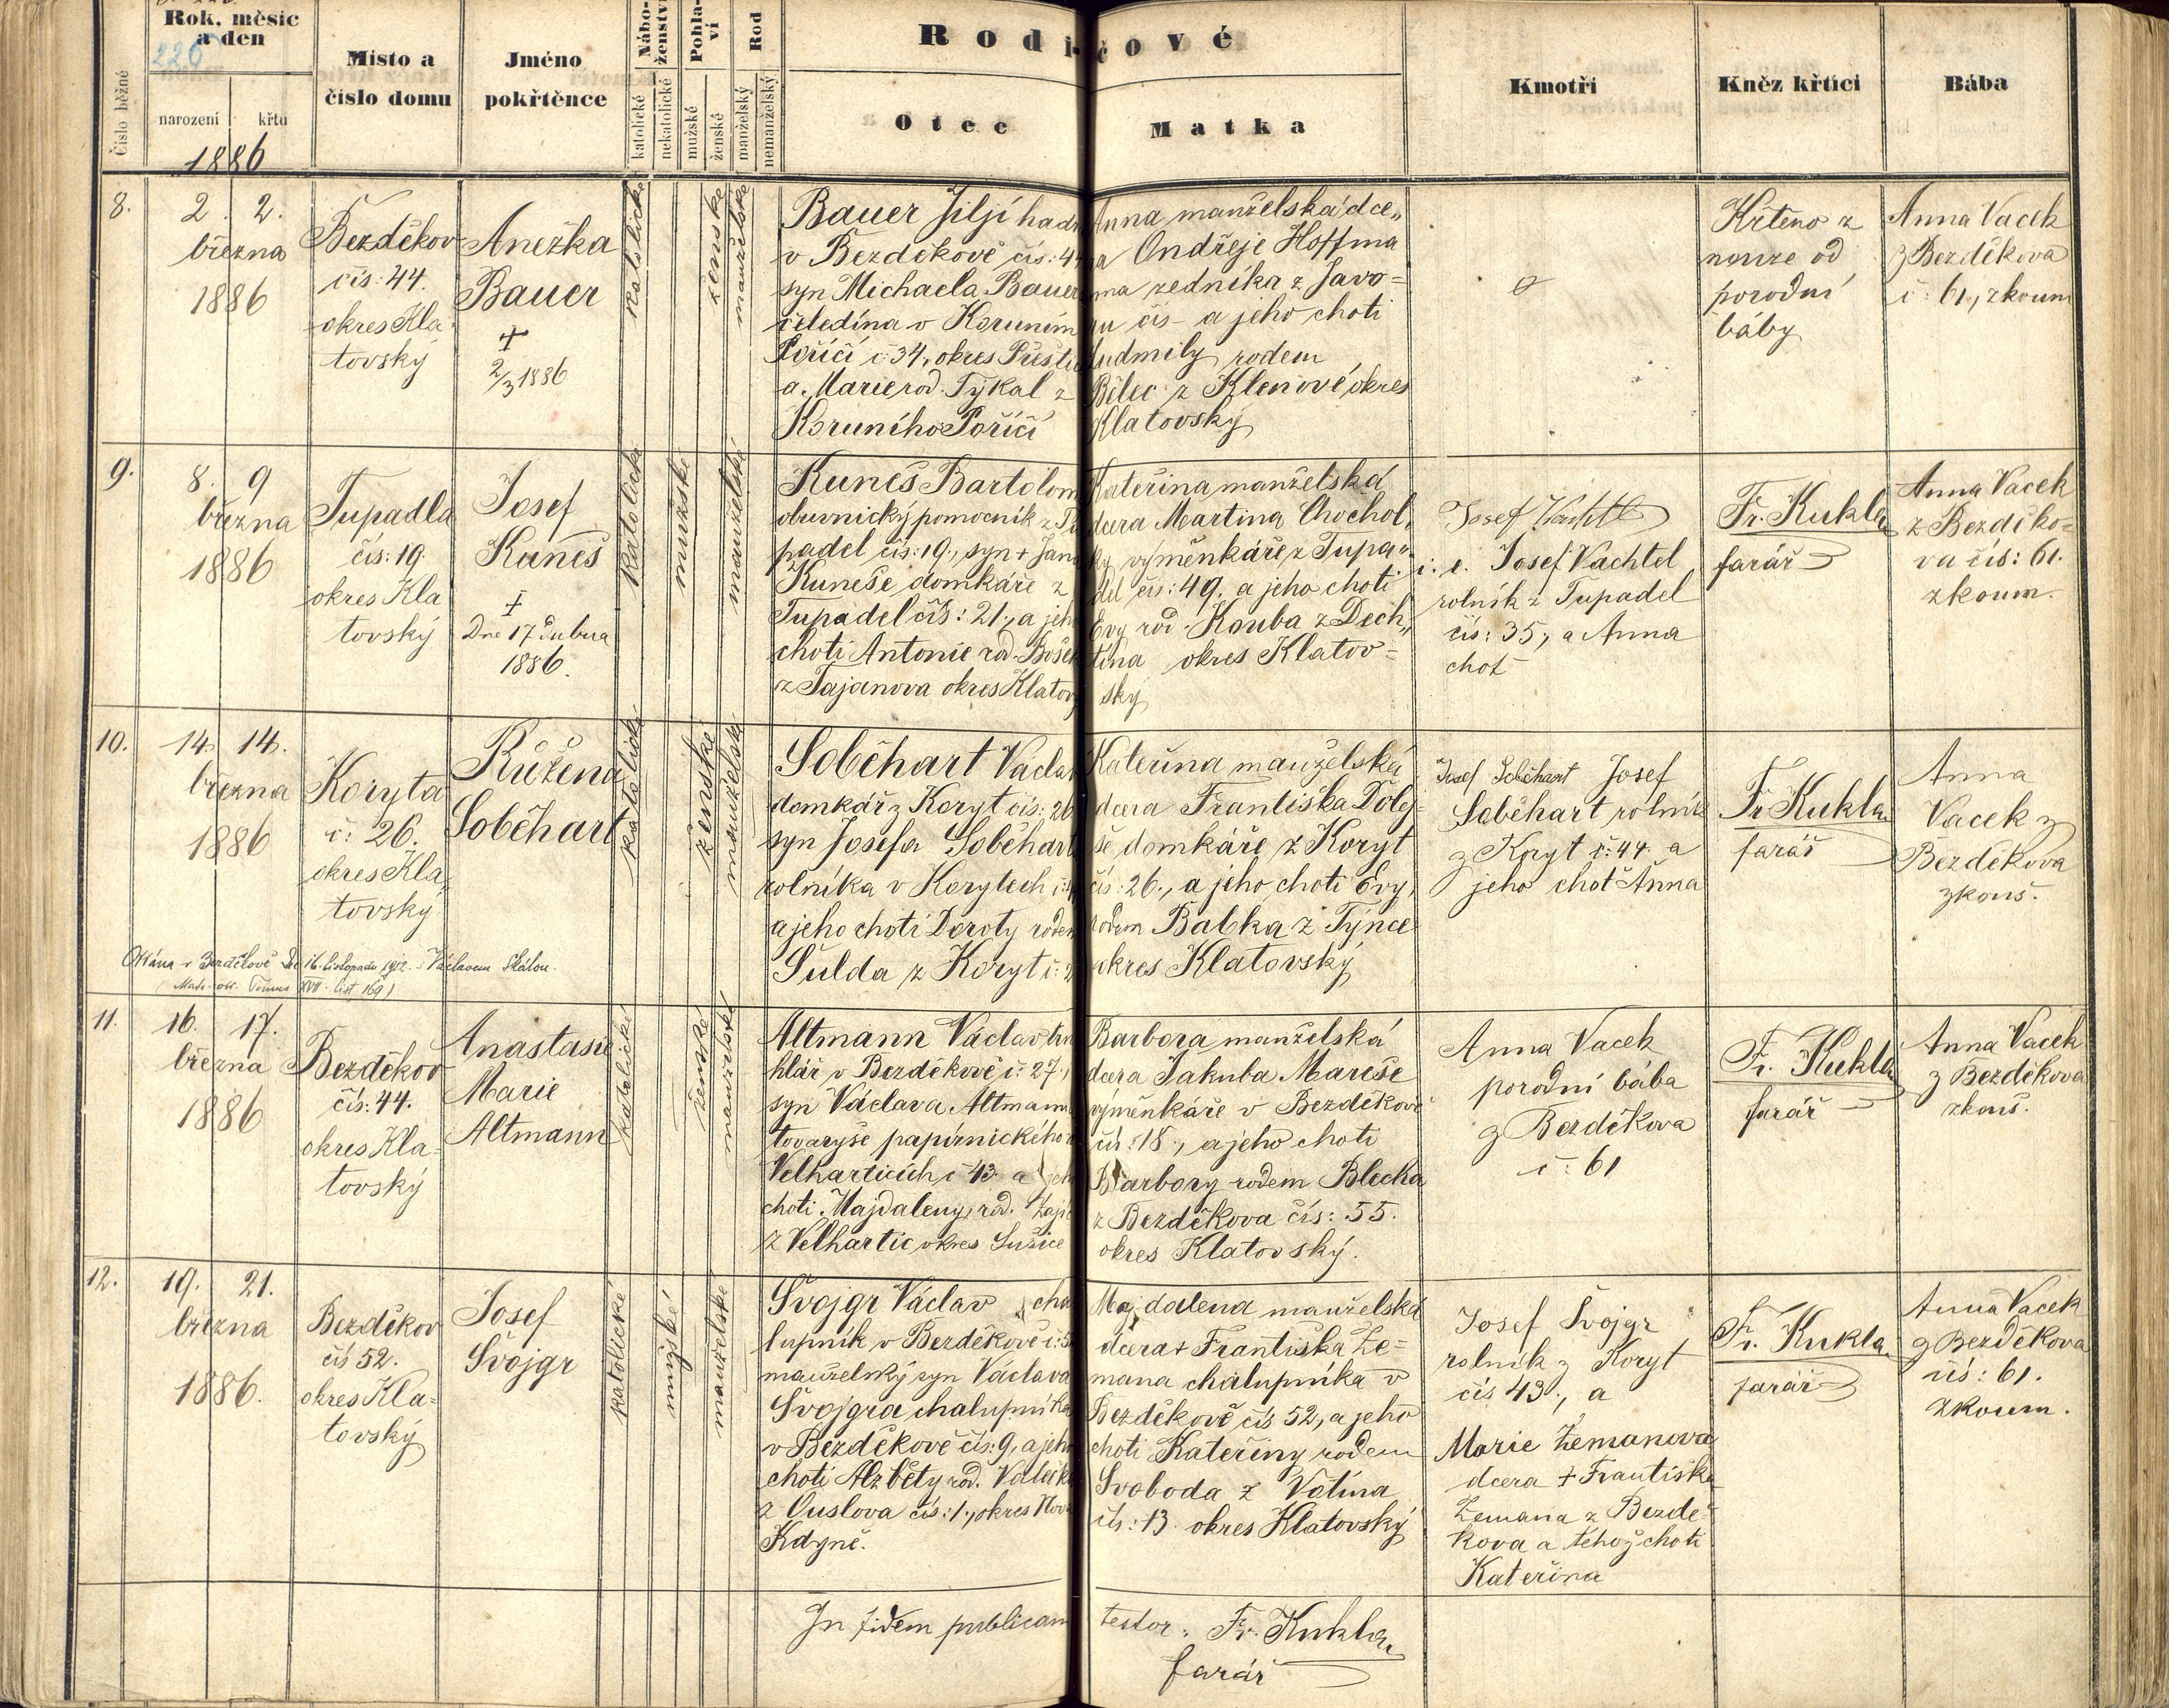 Rok, měsíc
a den
226
narození křtu
1886
Číslo běžné
Místo a
číslo domu
Jméno
pokřtěnce
Nábo-
ženství
katolické
nekatolické
Pohla-
ví
mužské
ženské
Rod
manželský
nemanželský
Rodičové
Otec
Matka
Kmotři
Kněz křtící
Bába
8.
2. 2.
března
1886
Bezděkov
čís: 44.
okres Kla
tovský
Anežka
Bauer
+
2/3 1886
katolické
ženské
manželské
Bauer Jiljí
v Bezděkově čís: 44
syn Michaela Bauer
čeledína v Koruním
Poříčí č: 34, okres Přeštic
a Marie rod. Tykal z
Koruního Poříčí
Anna manželská dce„
ra Ondřeje Hoffma
na zedníka z Javo=
ru čís – a jeho choti
Ludmily rodem
Bílec z Klenové okres
Klatovský
Křteno z
nouze od
porodní
báby
Anna Vacek
z Bezděkova
č: 61, zkoum
9.
8. 9
března
1886
Tupadla
čís: 19.
okres Kla
tovský
Josef
Kuneš
+
Dne 17 dubna
1886.
katolické
mužské
manželské
Kuneš Bartolom
obuvnický pomocník z Tu
padel čís: 19, syn + Jana
Kuneše domkáře z
Tupadel čís: 21, a jeho
choti Antonie rod.
z Tajanova okres Klatov
Kateřina manželská
dcera Martina Chochol„
ky, výměnkáře z Tupa„
del čís: 49, a jeho choti
Evy rod. Kouba z Dech„
tína okres Klatov=
ský
Josef Vachtl
i. e. Josef Vachtel
rolník z Tupadel
čís: 35, a Anna
choť
Fr. Kukla
farář
Anna Vacek
z Bezděko=
va čís: 61.
zkoum.
10.
14. 14.
března
1886
Koryta
č: 26.
okres Kla„
tovský
Růžena
Soběhart
katolické
ženské
manželské
Soběhart Václav
domkář z Koryt čís: 26
syn Josefa Soběhart
rolníka v Korytech
a jeho choti Doroty rodem
Šulda z Koryt
Kateřina manželská
dcera Františka Dolej=
še domkáře z Koryt
čís: 26, a jeho choti Evy,
rodem Babka z Týnce
okres Klatovský
Josef Soběhart Josef
Soběhart rolník
z Koryt č: 44. a
jeho choť Anna
Fr Kukla
farář
Anna
Vacek z
Bezděkova
zkouš.
v Bezděkově dne 16. listopadu 1912. s Václavem Skálou.
Matr. odd. Tomus XVII. list 169)
11.
16. 17.
března
1886
Bezděkov
čís: 44.
okres Kla=
tovský
Anastasie
Marie
Altmann
katolické
ženské
manželské
Altmann Václav tru
hlář v Bezděkově č: 27,
syn Václava Altmanna
tovaryše papírnického v
Velharticích č 43 a jeho
choti Majdaleny, rod. Zajíc
z Velhartic okres Sušice
Barbora manželská
dcera Jakuba Mareše
výměnkáře v Bezděkově
čís: 18, a jeho choti
Barbory rodem Blecha
z Bezděkova čís: 55.
okres Klatovský.
Anna Vacek
porodní bába
z Bezděkova
č: 61
Fr. Kukla
farář
Anna Vacek
z Bezděkova
zkouš.
12.
19. 21.
března
1886.
Bezděkov
čís 52.
okres Kla=
tovský
Josef
Švojgr
katolické
mužské
manželské
Švojgr Václav cha
lupník v Bezděkově č: 5
manželský syn Václava
Švojgra chalupníka
v Bezděkově čís: 9, a jeho
choti Alžběty rod.
z Ouslova čís: 1, okres Nová
Kdyně.
Majdalena manželská
dcera + Františka Ze=
mana chalupníka v
Bezděkově čís 52, a jeho
choti Kateřiny rodem
Svoboda z Votína
čís: 13. okres Klatovský
Josef Švojgr
rolník z Koryt
čís 43, a
Marie Zemanova
dcera + Františka
Zemana z Bezdě
kova a téhož choti
Kateřina
Fr. Kukla
farář
Anna Vacek
z Bezděkova
čís: 61.
zkoum.
In fidem publicam testor: Fr. Kukla
farář